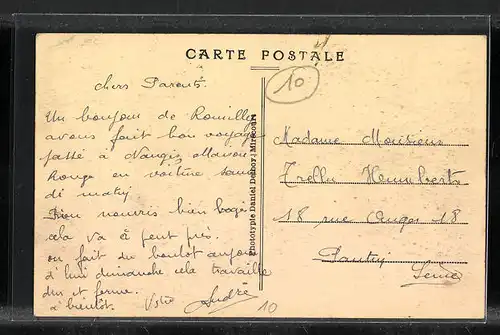 CARTE POSTALE
10
chers Parents.
Un bonjour de Romilly
avons fait bon voyage
passé à Nangis
Rouge en voiture
di matin
bien
cela va à peut près.
on fait du boulot aujour
d'hui dimanche cela travaille
dur et ferme.
à bientôt. Votre André
Phototypie Daniel Delboy, Mirecourt
Madame Monsieur
18 rue Auger 18
Pantin
Seine
10